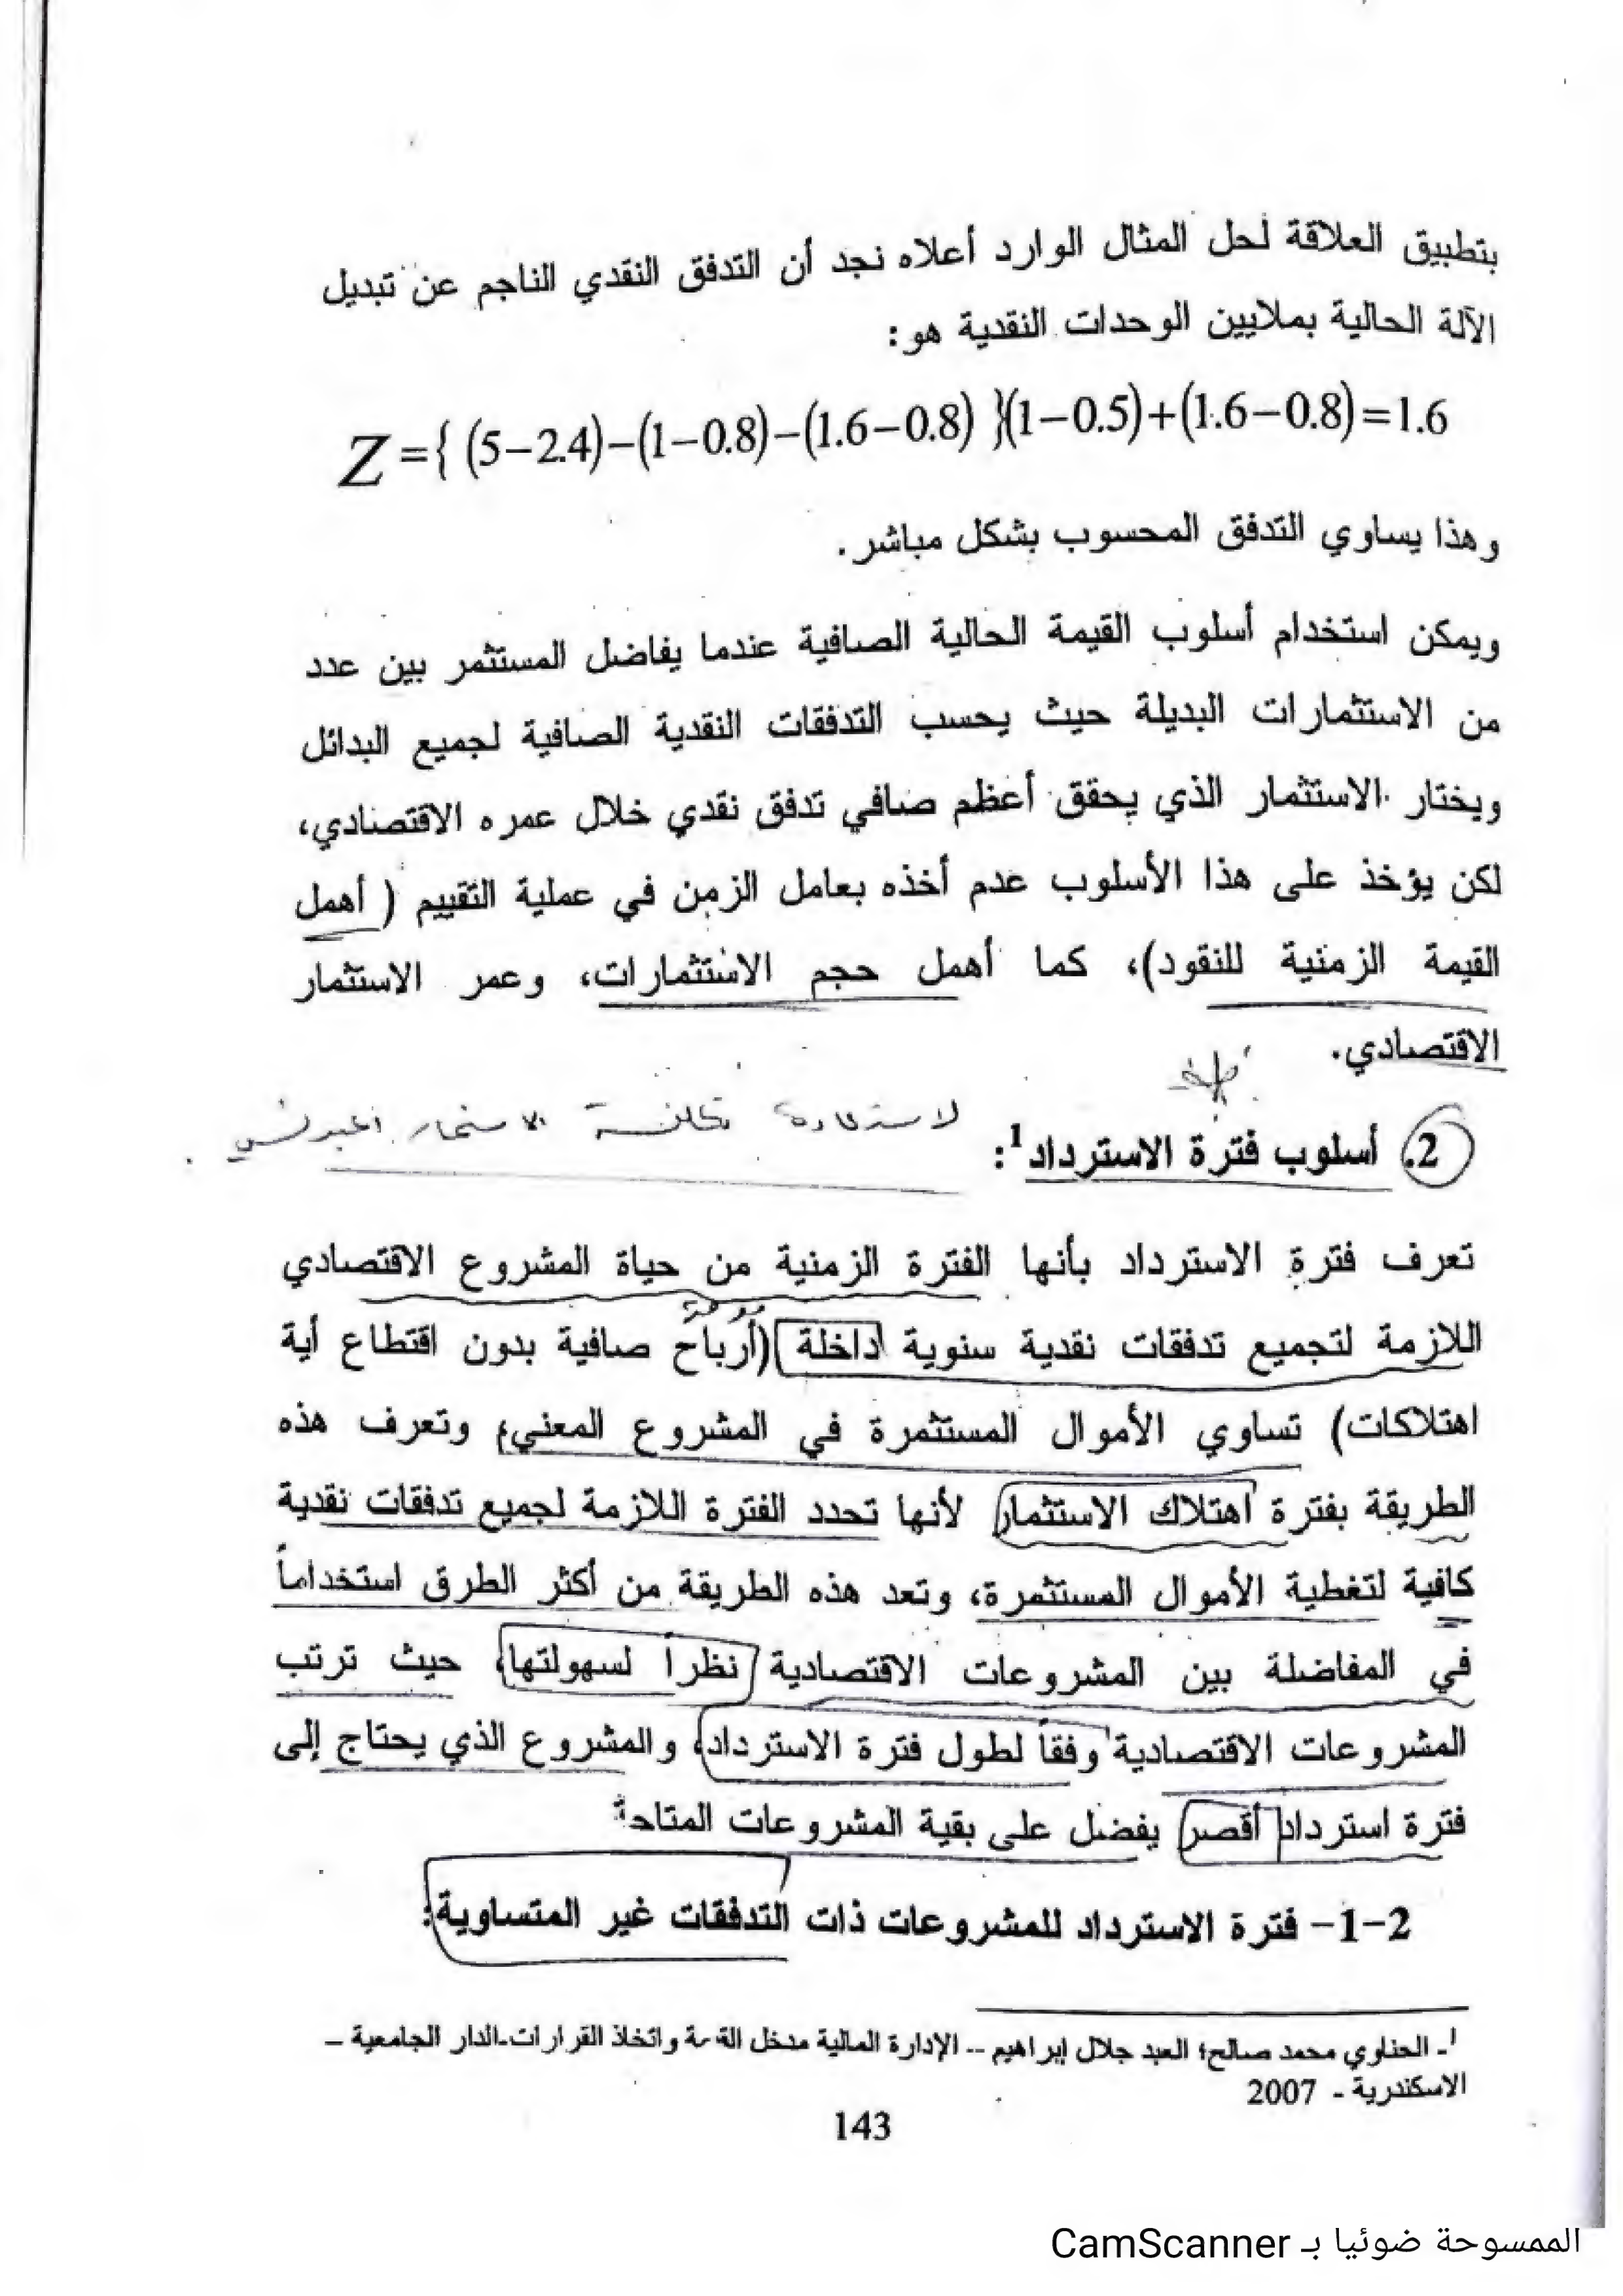 بتطبيق العلاقة لحل المثال الوارد أعلاه نجد أن التدفق النقدي الناجم عن تبديل
الآلة الحالية بملايين الوحدات النقدية هو:
Z={ (5-2.4)-(1-0.8)-(1.6-0.8) }(1-0.5)+(1.6-0.8)=1.6
وهذا يساوي التدفق المحسوب بشكل مباشر.
ويمكن استخدام أسلوب القيمة الحالية الصافية عندما يفاضل المستثمر بين عدد
من الاستثمارات البديلة حيث يحسب التدفقات النقدية الصافية لجميع البدائل
ويختار الاستثمار الذي يحقق أعظم صافي تدفق نقدي خلال عمره الاقتصادي،
لكن يؤخذ على هذا الأسلوب عدم أخذه بعامل الزمن في عملية التقييم ( أهمل
القيمة الزمنية للنقود)، كما أهمل حجم الاستثمارات، وعمر الاستثمار
الاقتصادي.
لاستعادة تكلفة الاستثمار
2. أسلوب فترة الاسترداد1:
تعرف فترة الاسترداد بأنها الفترة الزمنية من حياة المشروع الاقتصادي
اللازمة لتجميع تدفقات نقدية سنوية داخلة (أرباح صافية بدون اقتطاع أية
اهتلاكات) تساوي الأموال المستثمرة في المشروع المعني، وتعرف هذه
الطريقة بفترة اهتلاك الاستثمار لأنها تحدد الفترة اللازمة لجميع تدفقات نقدية
كافية لتغطية الأموال المستثمرة، وتعد هذه الطريقة من أكثر الطرق استخداماً
في المفاضلة بين المشروعات الاقتصادية نظراً لسهولتها، حيث ترتب
المشروعات الاقتصادية وفقاً لطول فترة الاسترداد، والمشروع الذي يحتاج إلى
فترة استرداد أقصر يفضل على بقية المشروعات المتاحة
2-1- فترة الاسترداد للمشروعات ذات التدفقات غير المتساوية:
1- الحناوي محمد صالح؛ العبد جلال إبراهيم -- الإدارة المالية مدخل القيمة واتخاذ القرارات-الدار الجامعية –
الاسكندرية - 2007
143
الممسوحة ضوئيا بـ CamScanner